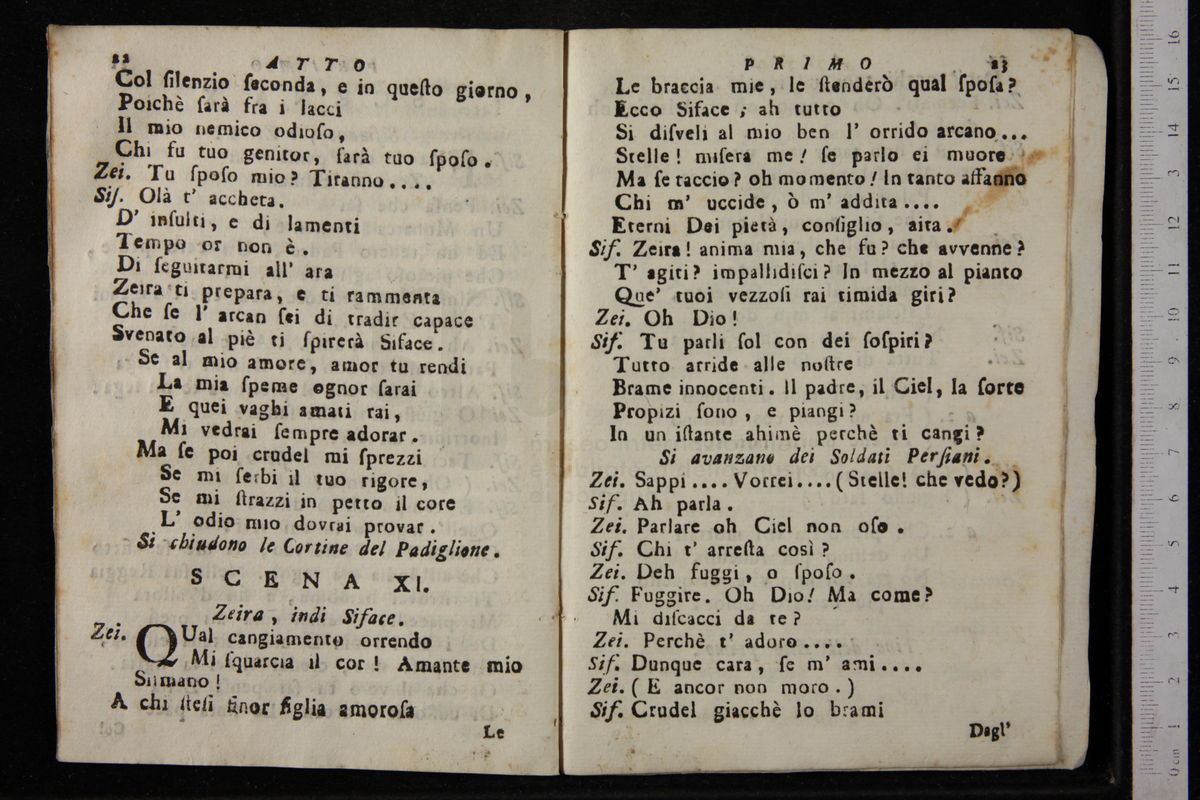 22 ATTO
Col ſilenzio ſeconda, e in queſto giorno,
Poichè ſarà fra i lacci
Il mio nemico odioſo,
Chi fu tuo genitor, ſarà tuo ſpoſo.
Zei. Tu ſpoſo mio? Tiranno....
Siſ. Olà t' accheta.
D' inſulti, e di lamenti
Tempo or non è.
Di ſeguitarmi all' ara
Zeira ti prepara, e ti rammenta
Che ſe l' arcan ſei di tradir capace
Svenato al piè ti ſpirerà Siface.
Se al mio amore, amor tu rendi
La mia ſpeme ognor ſarai
E quei vaghi amati rai,
Mi vedrai ſempre adorar.
Ma ſe poi crudel mi ſprezzi
Se mi ſerbi il tuo rigore,
Se mi ſtrazzi in petto il core
L' odio mio dovrai provar.
Si chiudono le Cortine del Padiglione.
SCENA XI.
Zeira, indi Siface.
Zei. QUal cangiamento orrendo
Mi ſquarcia il cor! Amante mio
Silmano!
A chi ſteſi ſinor figlia amoroſa
Le
PRIMO 23
Le braccia mie, le ſtenderò qual ſpoſa?
Ecco Siface; ah tutto
Si diſveli al mio ben l' orrido arcano...
Stelle! miſera me! ſe parlo ei muore
Ma ſe taccio? oh momento! In tanto affanno
Chi m' uccide, ò m' addita....
Eterni Dei pietà, conſiglio, aita.
Sif. Zeira! anima mia, che fu? che avvenne?
T' agiti? impallidiſci? In mezzo al pianto
Que' tuoi vezzoſi rai timida giri?
Zei. Oh Dio!
Sif. Tu parli ſol con dei ſoſpiri?
Tutto arride alle noſtre
Brame innocenti. Il padre, il Ciel, la ſorte
Propizi ſono, e piangi?
In un iſtante ahimè perchè ti cangi?
Si avanzano dei Soldati Perſiani.
Zei. Sappi.... Vorrei.... (Stelle! che vedo?)
Sif. Ah parla.
Zei. Parlare oh Ciel non oſo.
Sif. Chi t' arreſta così?
Zei. Deh fuggi, o ſpoſo.
Sif. Fuggire. Oh Dio! Ma come?
Mi diſcacci da te?
Zei. Perchè t' adoro....
Sif. Dunque cara, ſe m' ami....
Zei. (E ancor non moro.)
Sif. Crudel giacchè lo brami
Dagl'